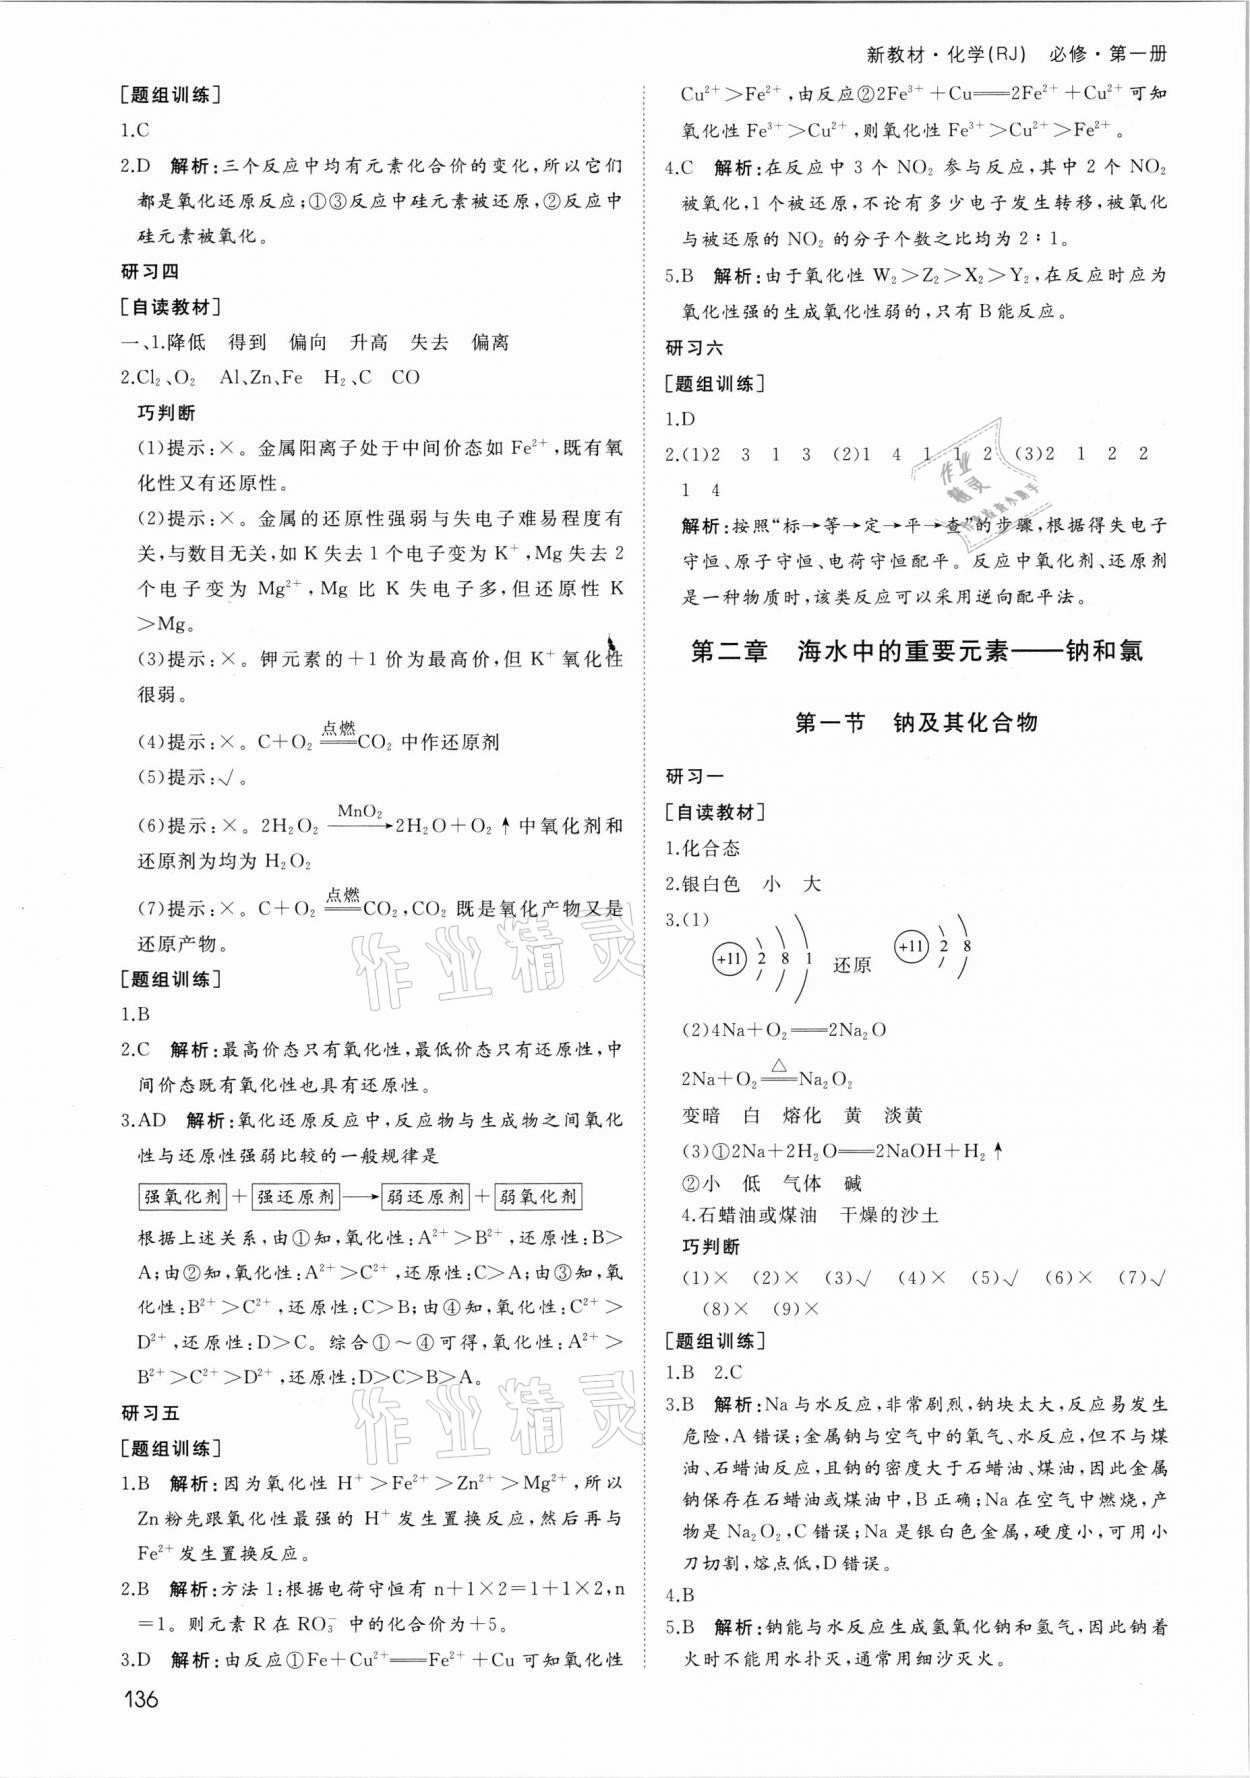 新教材·化学(RJ) 必修·第一册
[题组训练]
1.C
2.D 解析:三个反应中均有元素化合价的变化,所以它们
都是氧化还原反应;①③反应中硅元素被还原,②反应中
硅元素被氧化。
研习四
[自读教材]
一、1.降低 得到 偏向 升高 失去 偏离
2.Cl₂、O₂ Al、Zn、Fe H₂、C CO
巧判断
(1)提示:×。金属阳离子处于中间价态如Fe²⁺,既有氧
化性又有还原性。
(2)提示:×。金属的还原性强弱与失电子难易程度有
关,与数目无关,如K失去1个电子变为K⁺,Mg失去2
个电子变为Mg²⁺,Mg比K失电子多,但还原性K
>Mg。
(3)提示:×。钾元素的+1价为最高价,但K⁺氧化性
很弱。
(4)提示:×。C+O₂ 点燃══CO₂中作还原剂
(5)提示:√。
(6)提示:×。2H₂O₂ MnO₂──→2H₂O+O₂↑中氧化剂和
还原剂为均为H₂O₂
(7)提示:×。C+O₂ 点燃══CO₂,CO₂既是氧化产物又是
还原产物。
[题组训练]
1.B
2.C 解析:最高价态只有氧化性,最低价态只有还原性,中
间价态既有氧化性也具有还原性。
3.AD 解析:氧化还原反应中,反应物与生成物之间氧化
性与还原性强弱比较的一般规律是
强氧化剂+强还原剂──→弱还原剂+弱氧化剂
根据上述关系,由①知,氧化性:A²⁺>B²⁺,还原性:B>
A;由②知,氧化性:A²⁺>C²⁺,还原性:C>A;由③知,氧
化性:B²⁺>C²⁺,还原性:C>B;由④知,氧化性:C²⁺>
D²⁺,还原性:D>C。综合①~④可得,氧化性:A²⁺>
B²⁺>C²⁺>D²⁺,还原性:D>C>B>A。
研习五
[题组训练]
1.B 解析:因为氧化性 H⁺>Fe²⁺>Zn²⁺>Mg²⁺,所以
Zn粉先跟氧化性最强的H⁺发生置换反应,然后再与
Fe²⁺发生置换反应。
2.B 解析:方法1:根据电荷守恒有n+1×2=1+1×2,n
=1。则元素R在RO₃⁻中的化合价为+5。
3.D 解析:由反应①Fe+Cu²⁺══Fe²⁺+Cu可知氧化性
136
Cu²⁺>Fe²⁺,由反应②2Fe³⁺+Cu══2Fe²⁺+Cu²⁺可知
氧化性Fe³⁺>Cu²⁺,则氧化性Fe³⁺>Cu²⁺>Fe²⁺。
4.C 解析:在反应中3个NO₂参与反应,其中2个NO₂
被氧化,1个被还原,不论有多少电子发生转移,被氧化
与被还原的NO₂的分子个数之比均为2∶1。
5.B 解析:由于氧化性W₂>Z₂>X₂>Y₂,在反应时应为
氧化性强的生成氧化性弱的,只有B能反应。
研习六
[题组训练]
1.D
2.(1)2 3 1 3 (2)1 4 1 1 2 (3)2 1 2 2
1 4
解析:按照“标→等→定→平→查”的步骤,根据得失电子
守恒、原子守恒、电荷守恒配平。反应中氧化剂、还原剂
是一种物质时,该类反应可以采用逆向配平法。
第二章 海水中的重要元素——钠和氯
第一节 钠及其化合物
研习一
[自读教材]
1.化合态
2.银白色 小 大
3.(1)
+11 2 8 1 还原 +11 2 8
(2)4Na+O₂══2Na₂O
2Na+O₂ △══Na₂O₂
变暗 白 熔化 黄 淡黄
(3)①2Na+2H₂O══2NaOH+H₂↑
②小 低 气体 碱
4.石蜡油或煤油 干燥的沙土
巧判断
(1)× (2)× (3)√ (4)× (5)√ (6)× (7)√
(8)× (9)×
[题组训练]
1.B 2.C
3.B 解析:Na与水反应,非常剧烈,钠块太大,反应易发生
危险,A错误;金属钠与空气中的氧气、水反应,但不与煤
油、石蜡油反应,且钠的密度大于石蜡油、煤油,因此金属
钠保存在石蜡油或煤油中,B正确;Na在空气中燃烧,产
物是Na₂O₂,C错误;Na是银白色金属,硬度小,可用小
刀切割,熔点低,D错误。
4.B
5.B 解析:钠能与水反应生成氢氧化钠和氢气,因此钠着
火时不能用水扑灭,通常用细沙灭火。
作业精灵
作业精灵
作业
精灵